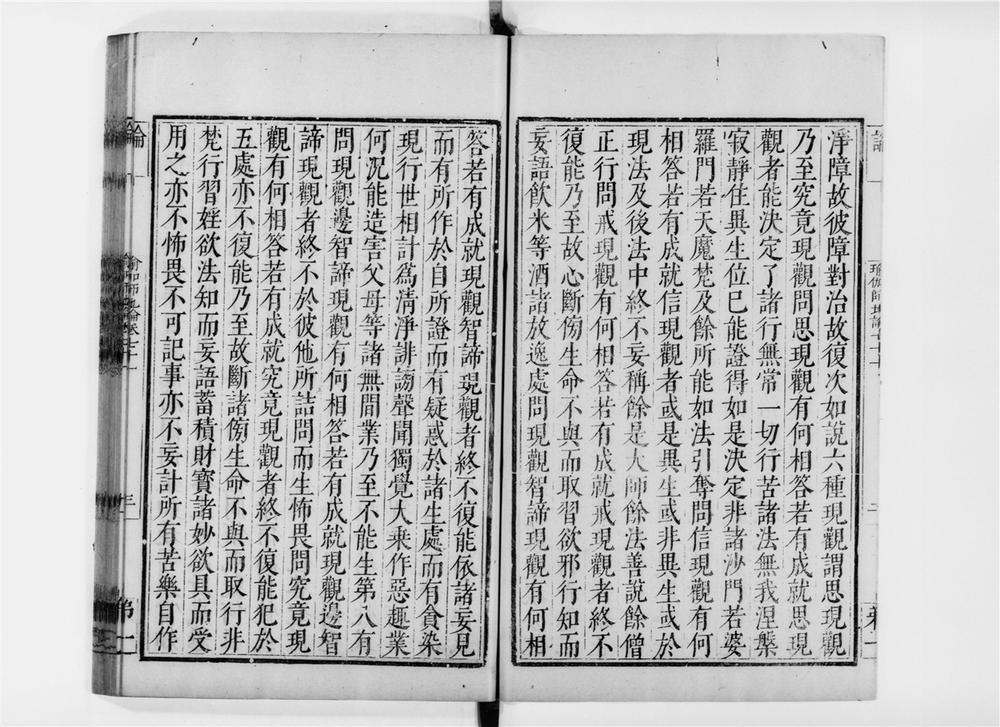 淨障故彼障對治故復次如說六種現觀謂思現觀
乃至究竟現觀問思現觀有何相答若有成就思現
觀者能決定了諸行無常一切行苦諸法無我涅槃
寂靜住異生位已能證得如是決定非諸沙門若婆
羅門若天魔梵及餘所能如法引奪問信現觀有何
相答若有成就信現觀者或是異生或非異生或於
現法及後法中終不妄稱餘是大師餘法善說餘僧
正行問戒現觀有何相答若有成就戒現觀者終不
復能乃至故心斷傍生命不與而取習欲邪行知而
妄語飲米等酒諸放逸處問現觀智諦現觀有何相
答若有成就現觀智諦現觀者終不復能依諸妄見
而有所作於自所證而有疑惑於諸生處而有貪染
現行世相計為清淨誹謗聲聞獨覺大乘作惡趣業
何況能造害父母等諸無間業乃至不能生第八有
問現觀邊智諦現觀有何相答若有成就現觀邊智
諦現觀者終不於彼他所詰問而生怖畏問究竟現
觀有何相答若有成就究竟現觀者終不復能犯於
五處亦不復能乃至故斷諸傍生命不與而取行非
梵行習婬欲法知而妄語蓄積財寶諸妙欲具而受
用之亦不怖畏不可記事亦不妄計所有苦樂自作
三
弟一